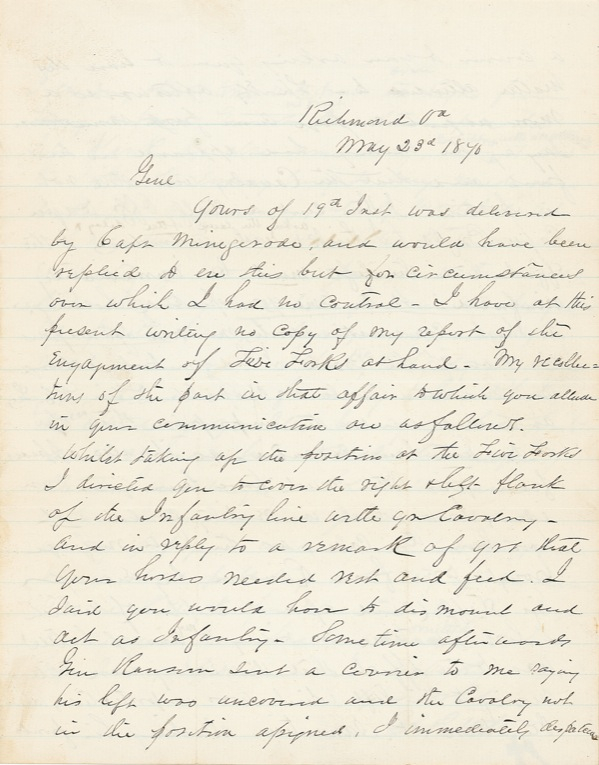 Richmond Va
May 23d 1870
Genl
Yours of 19th Inst was delivered
by Capt Minegerode, and would have been
replied to ere this but for circumstances
over which I had no control - I have at this
present writing no copy of my report of the
Engagement of Five Forks at hand - My recollec=
tions of the part in that affair to which you allude
in your communication are as follows.
Whilst taking up the position at the Five Forks
I directed you to cover the right & left flank
of the Infantry line with yr Cavalry -
and in reply to a remark of yrs that
your horses needed rest and feed. I
said you would have to dismount and
act as Infantry - Some time afterwards
Gen Ransom sent a courier to me saying
his left was uncovered and the Cavalry not
in the position assigned. I immediately